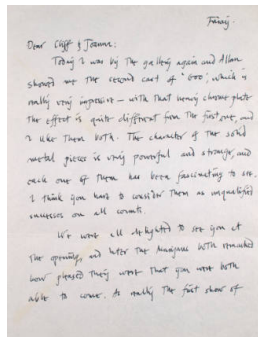 Friday
Dear Cliff & Joanna:
Today I was by the gallery again and Allan
showed me the second cast of "Goo", which is
really very impressive — with that heavy chrome plate
the effect is quite different from the first one, and
I like them both. The character of the solid
metal pieces is very powerful and strange, and
each one of them has been fascinating to see.
I think you have to consider them as unqualified
successes on all counts.
We were all delighted to see you at
the opening, and later the both remarked
how pleased they were that you were both
able to come. As really the first show of